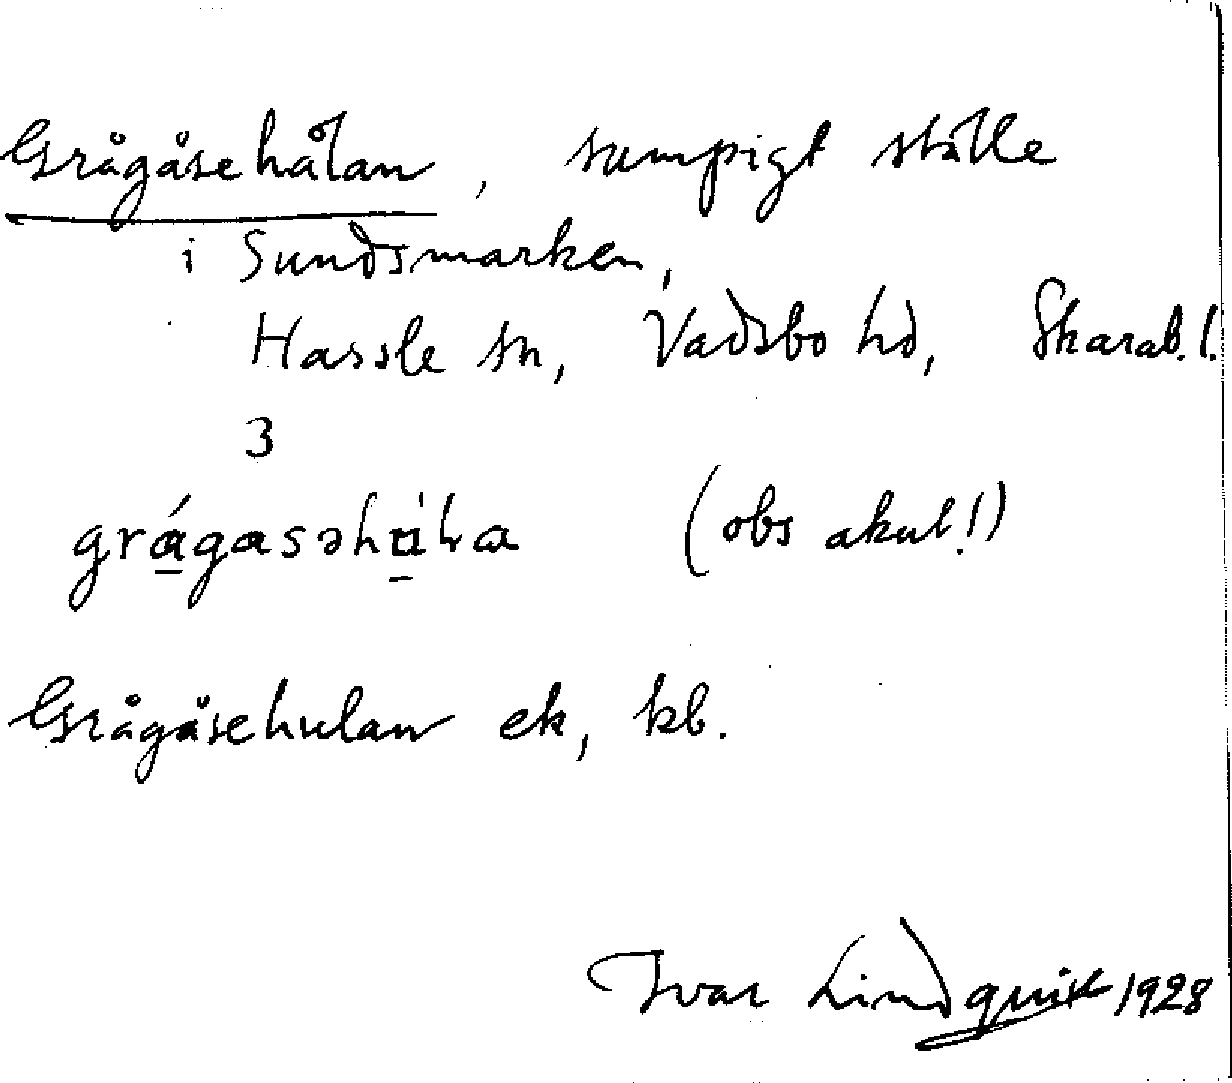 Grågåsehålan, sumpigt ställe
i Sundsmarken,
Hassle sn, Vadsbo hd, Skarab. l.
3
(obs akut!)
Grågåsehulan ek, kb.
Ivar Lindquist 1928